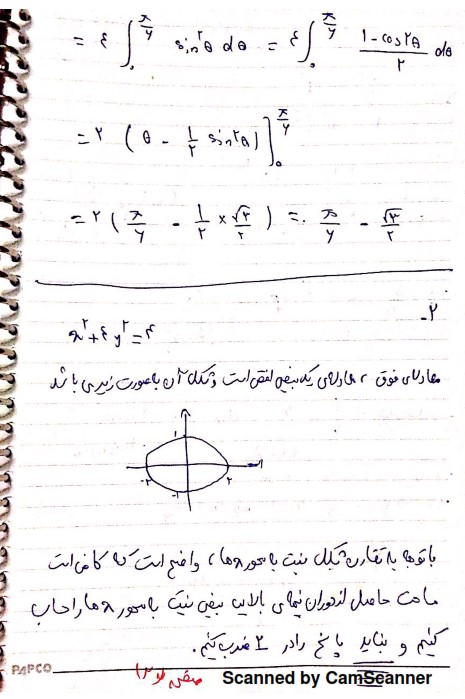 = ۴ ∫₀^(π/۶) sin²θ dθ = ۴ ∫₀^(π/۶) (1-cos۲θ)/۲ dθ
= ۲ (θ - ۱/۲ sin۲θ) ]₀^(π/۶)
= ۲ (π/۶ - ۱/۲ × √۳/۲) = π/۶ - √۳/۲
۲-
x² + ۴y² = ۴
معادله‌ی فوق ، معادله‌ی یک بیضی افقی است و شکل آن به صورت زیر می باشد
۱
-۲ ۲
-۱
با توجه به تقارن شکل نسبت به محور xها ، واضح است که کافی است
مساحت حاصل از دوران نیمه‌ی بالایی بیضی نسبت به محور xها را حساب
کنیم و نباید پاسخ را در ۲ ضرب کنیم.
PAPCO
Scanned by CamScanner